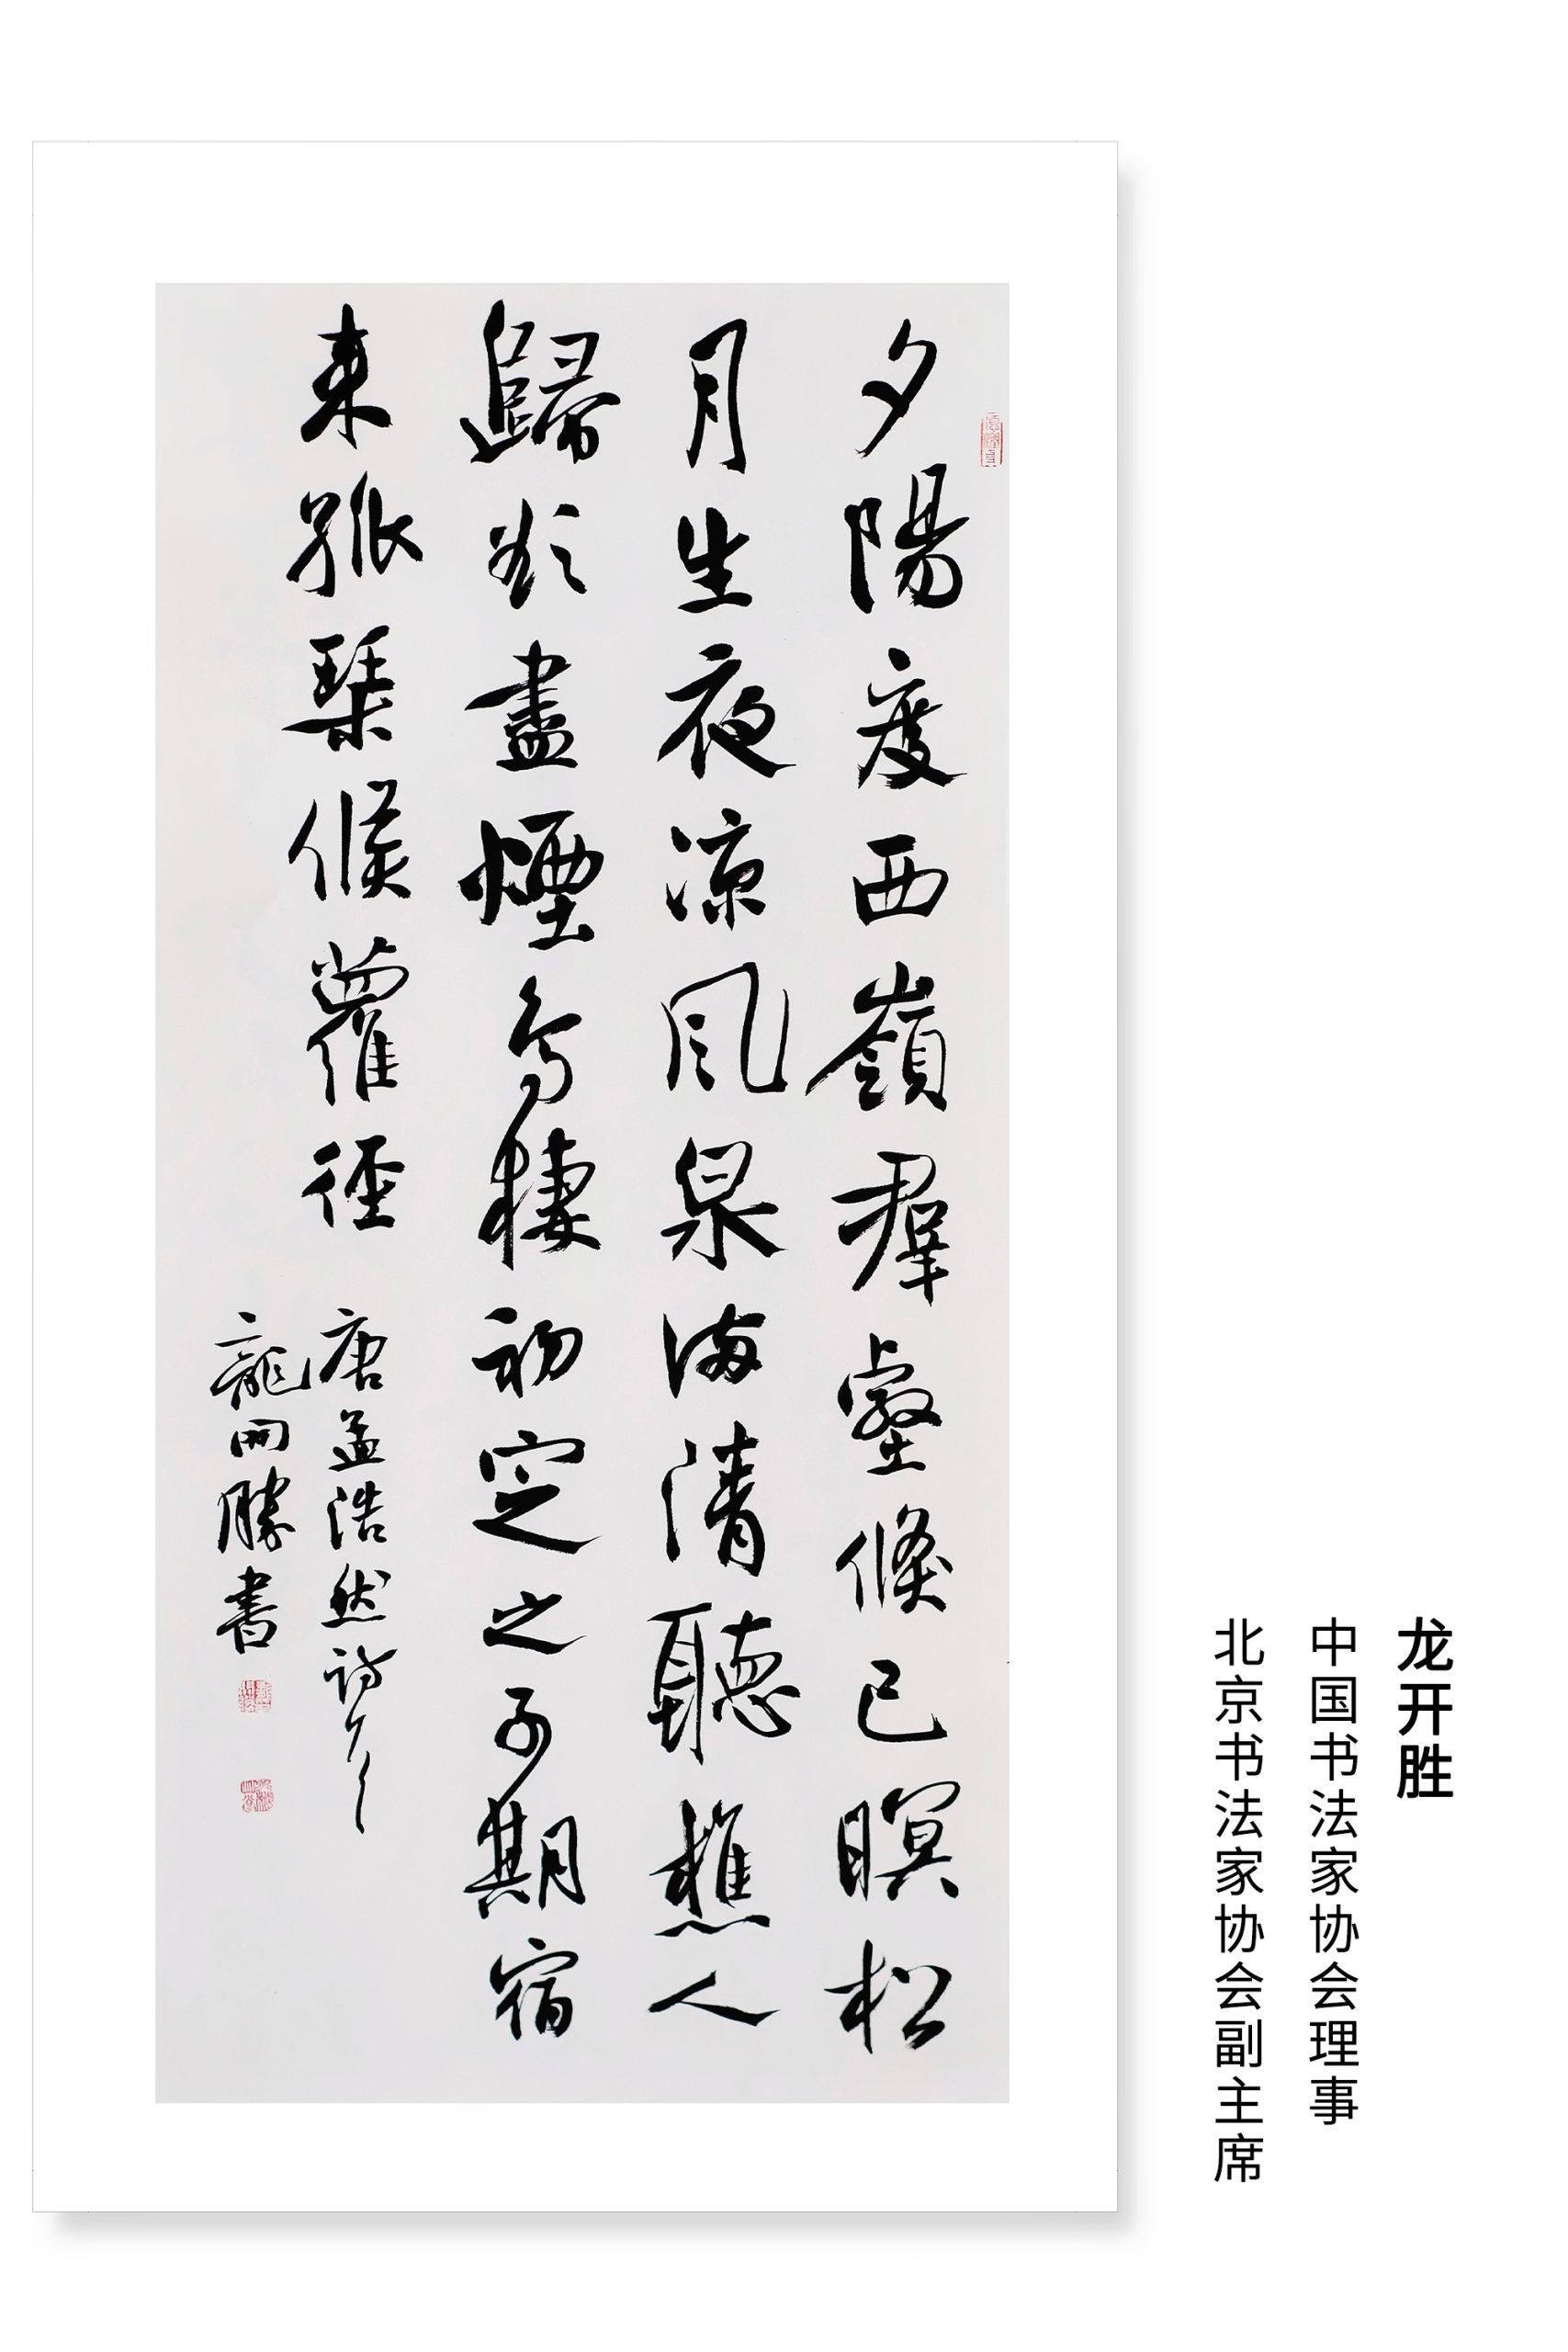 龙开胜
中国书法家协会理事
北京书法家协会副主席
夕陽度西嶺群壑倏已暝松
月生夜凉風泉滿清聽樵人
歸欲盡煙鳥棲初定之子期宿
来孤琴候蘿徑
唐孟浩然詩一首
龍開勝書